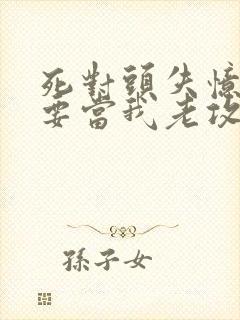 死對頭失憶
要當我老攻
孫子女